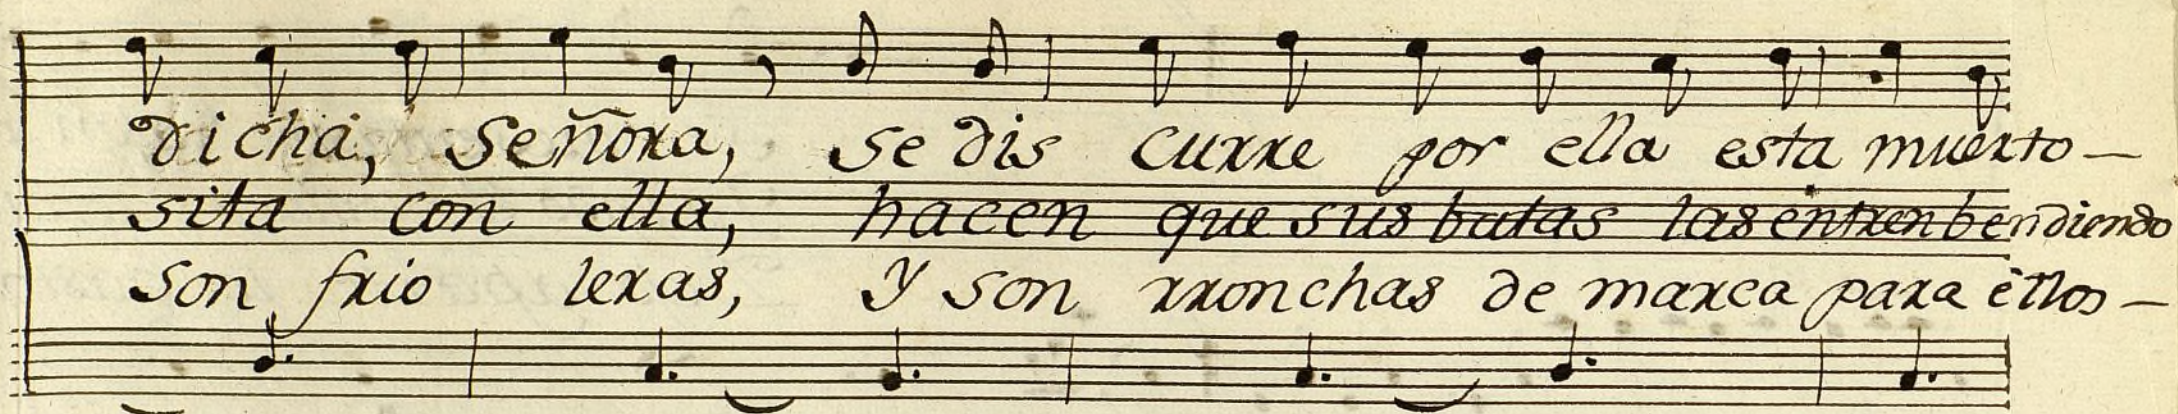 dicha, Señora, se dis curre por ella esta muerto—
sita con ella, hacen que sus batas las entren bendiendo
son frio leras, y son rronchas de marca para ellos—